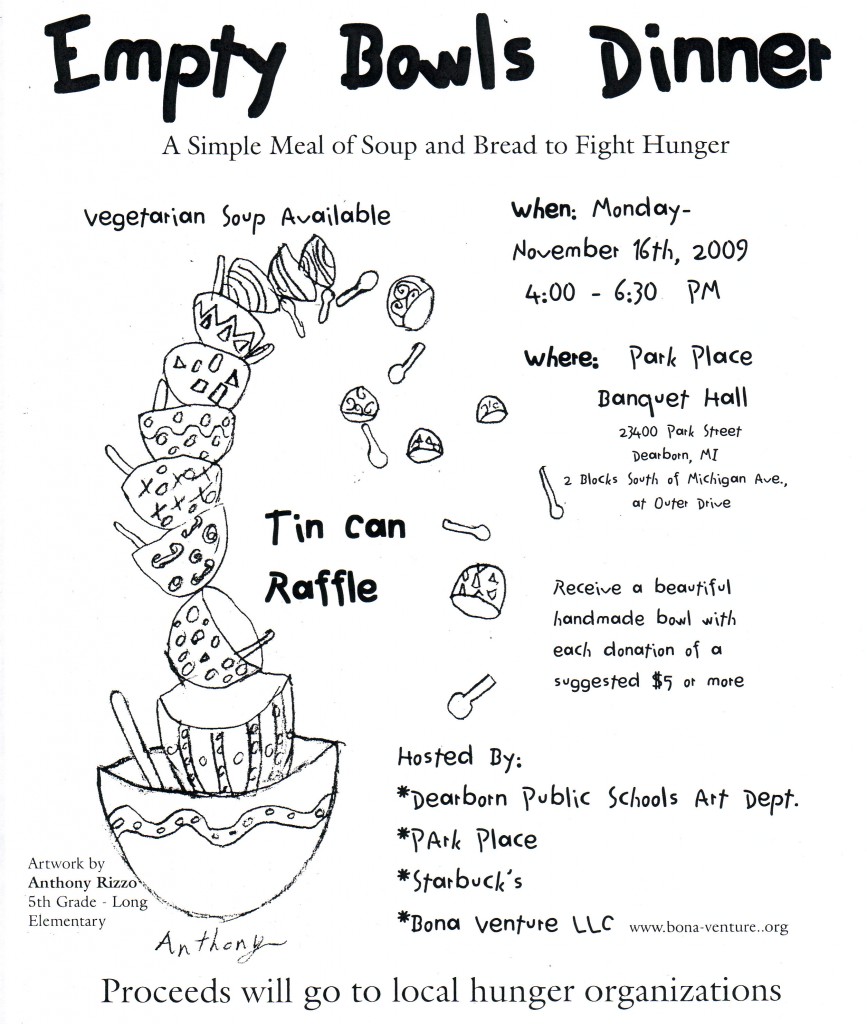 Empty Bowls Dinner
A Simple Meal of Soup and Bread to Fight Hunger
Vegetarian Soup Available
When: Monday-
November 16th, 2009
4:00 - 6:30 PM
Where: Park Place
Banquet Hall
23400 Park Street
Dearborn, MI
2 Blocks South of Michigan Ave.,
at Outer Drive
Tin Can
Raffle
Receive a beautiful
handmade bowl with
each donation of a
suggested $5 or more
Hosted By:
*Dearborn Public Schools Art Dept.
*PArk Place
*Starbuck's
*Bona Venture LLC www.bona-venture..org
Artwork by
Anthony Rizzo
5th Grade - Long
Elementary
Anthony
Proceeds will go to local hunger organizations